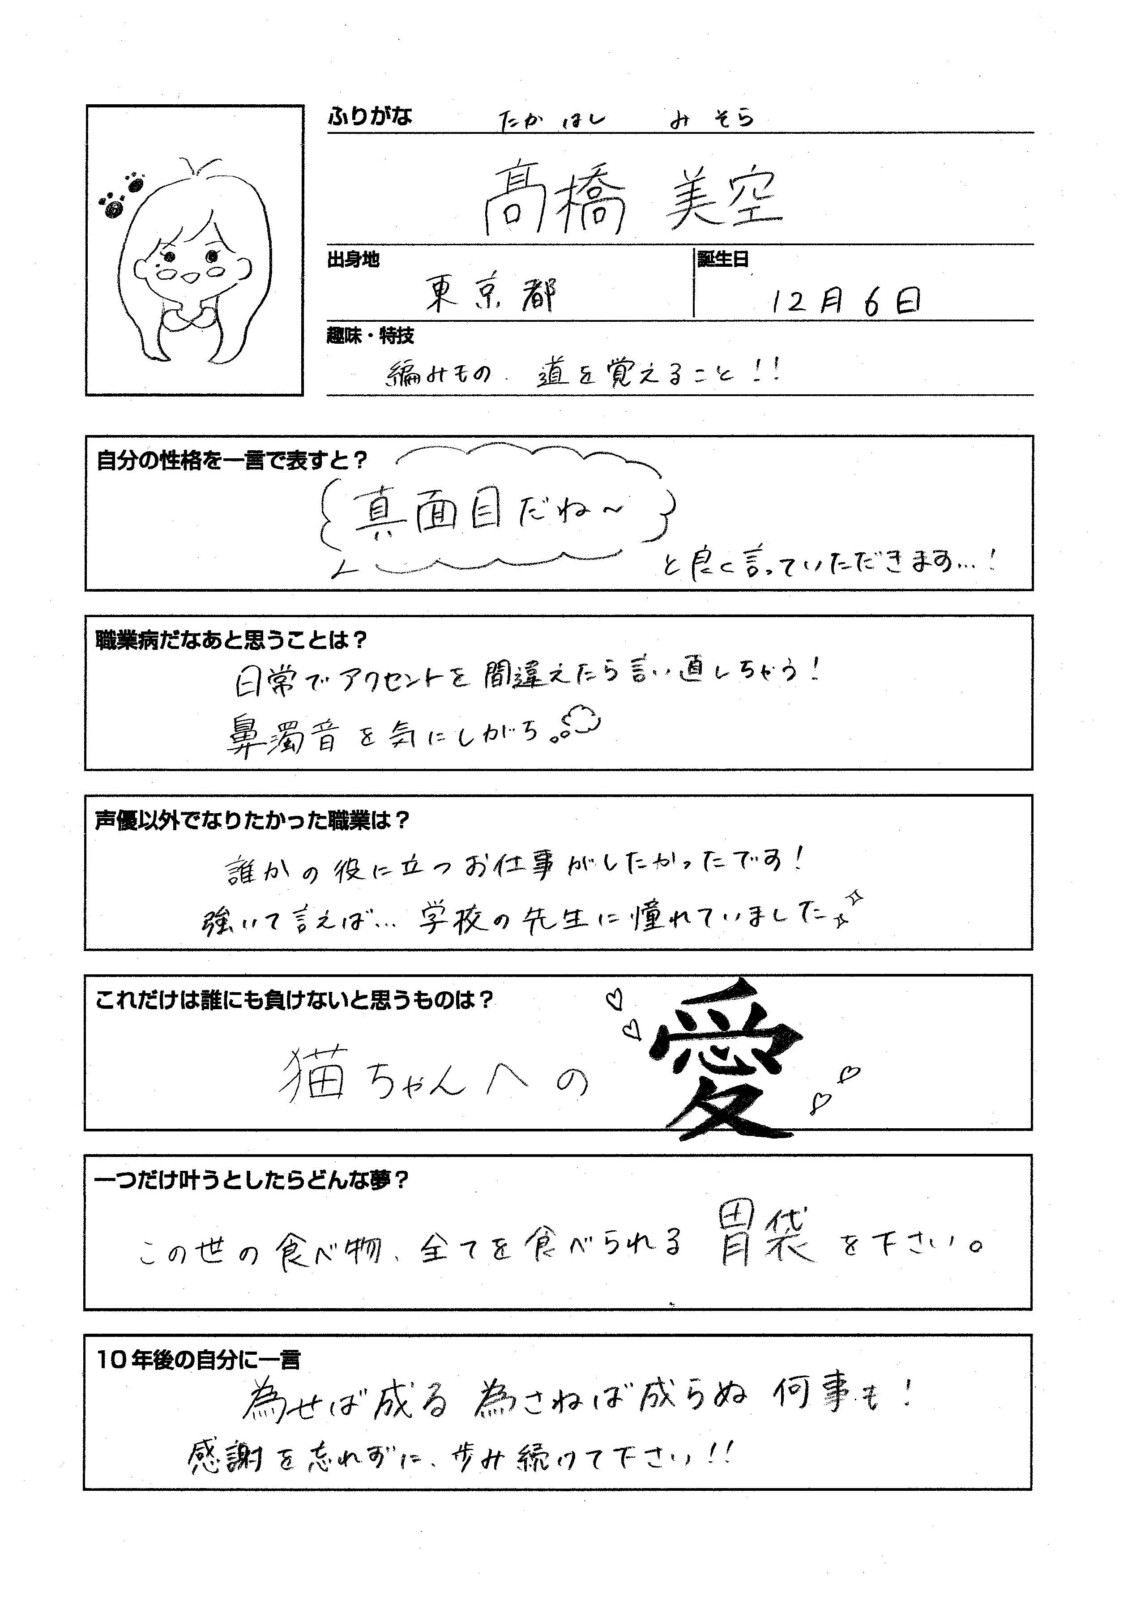 ふりがな たかはし みそら
髙橋 美空
出身地 誕生日
東京都 12月6日
趣味・特技
編みもの、道を覚えること!!
自分の性格を一言で表すと？
真面目だね〜
と良く言っていただきます…!
職業病だなあと思うことは？
日常でアクセントを間違えたら言い直しちゃう!
鼻濁音を気にしがち
声優以外でなりたかった職業は？
誰かの役に立つお仕事がしたかったです!
強いて言えば… 学校の先生に憧れていました
これだけは誰にも負けないと思うものは？
猫ちゃんへの愛
一つだけ叶うとしたらどんな夢？
この世の食べ物、全てを食べられる胃袋を下さい。
10年後の自分に一言
為せば成る 為さねば成らぬ 何事も!
感謝を忘れずに、歩み続けて下さい!!